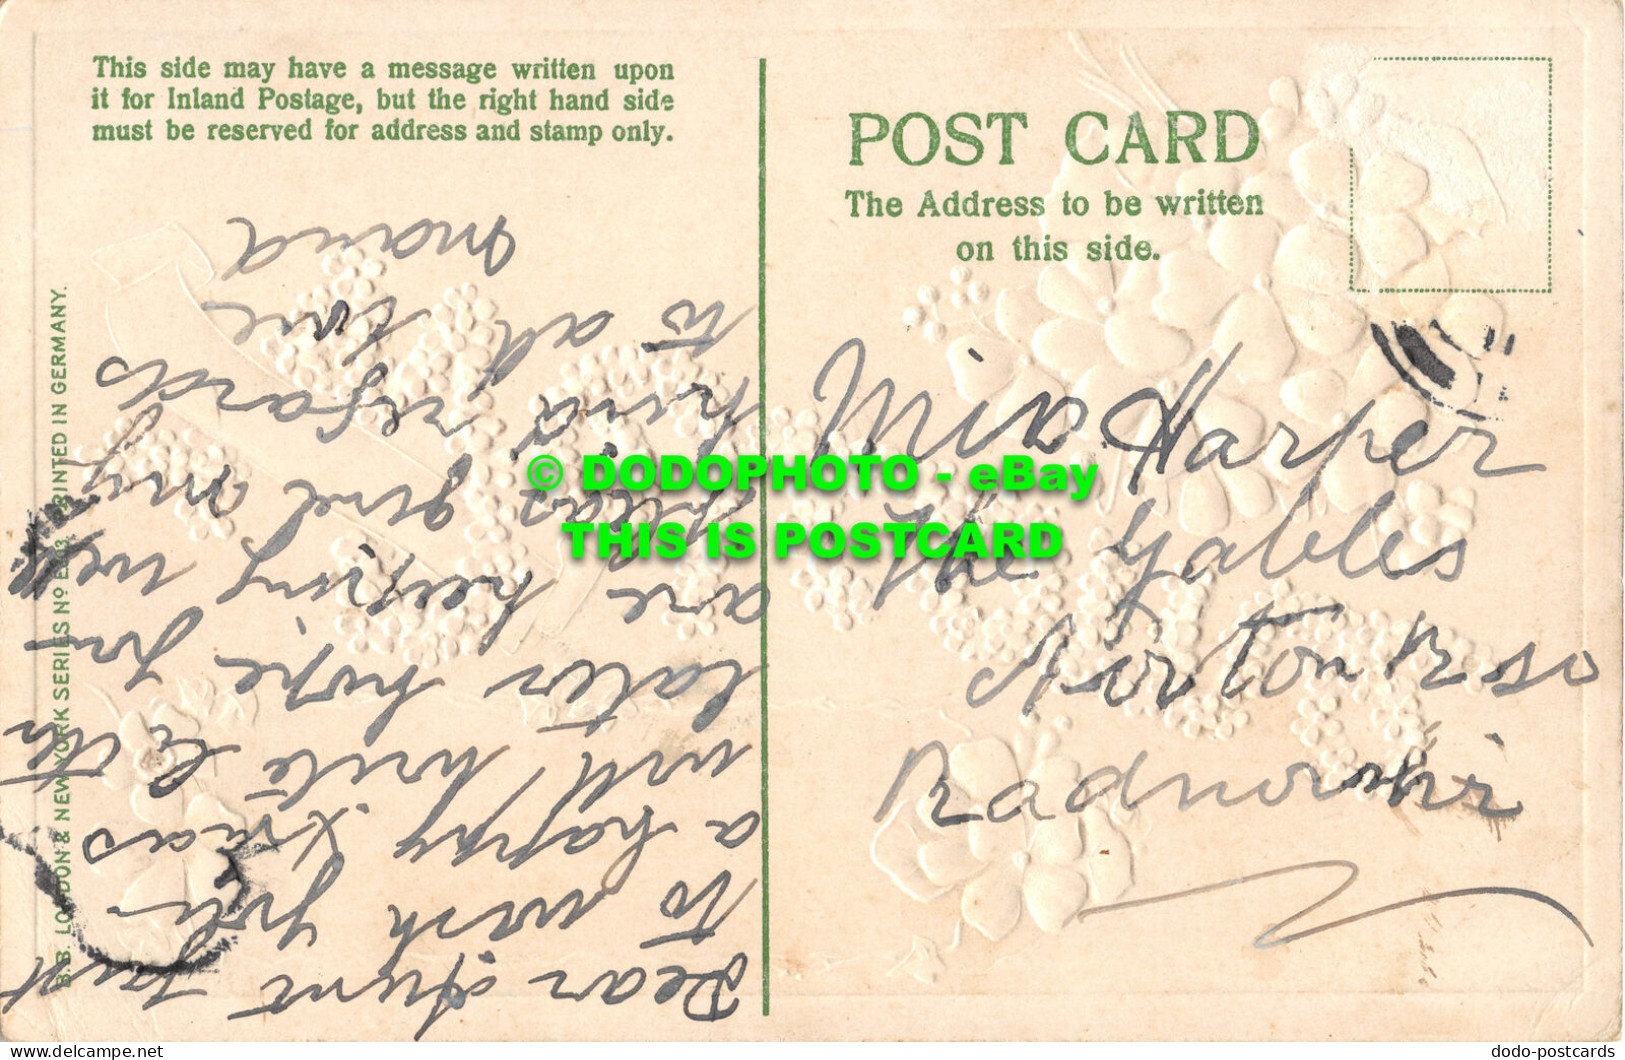 This side may have a message written upon
it for Inland Postage, but the right hand side
must be reserved for address and stamp only.
POST CARD
The Address to be written
on this side.
B.B. LONDON & NEW YORK SERIES No E PRINTED IN GERMANY.
Dear Aunt Just
to wish you
a happy Xmas
will write letter
later hope you
are keeping well
pleas give my
kind regards
to all love
Maud
Miss Harper
The Gables
Norton Rd
Radnorshire
© DODOPHOTO - eBay
THIS IS POSTCARD
www.delcampe.net
dodo-postcards